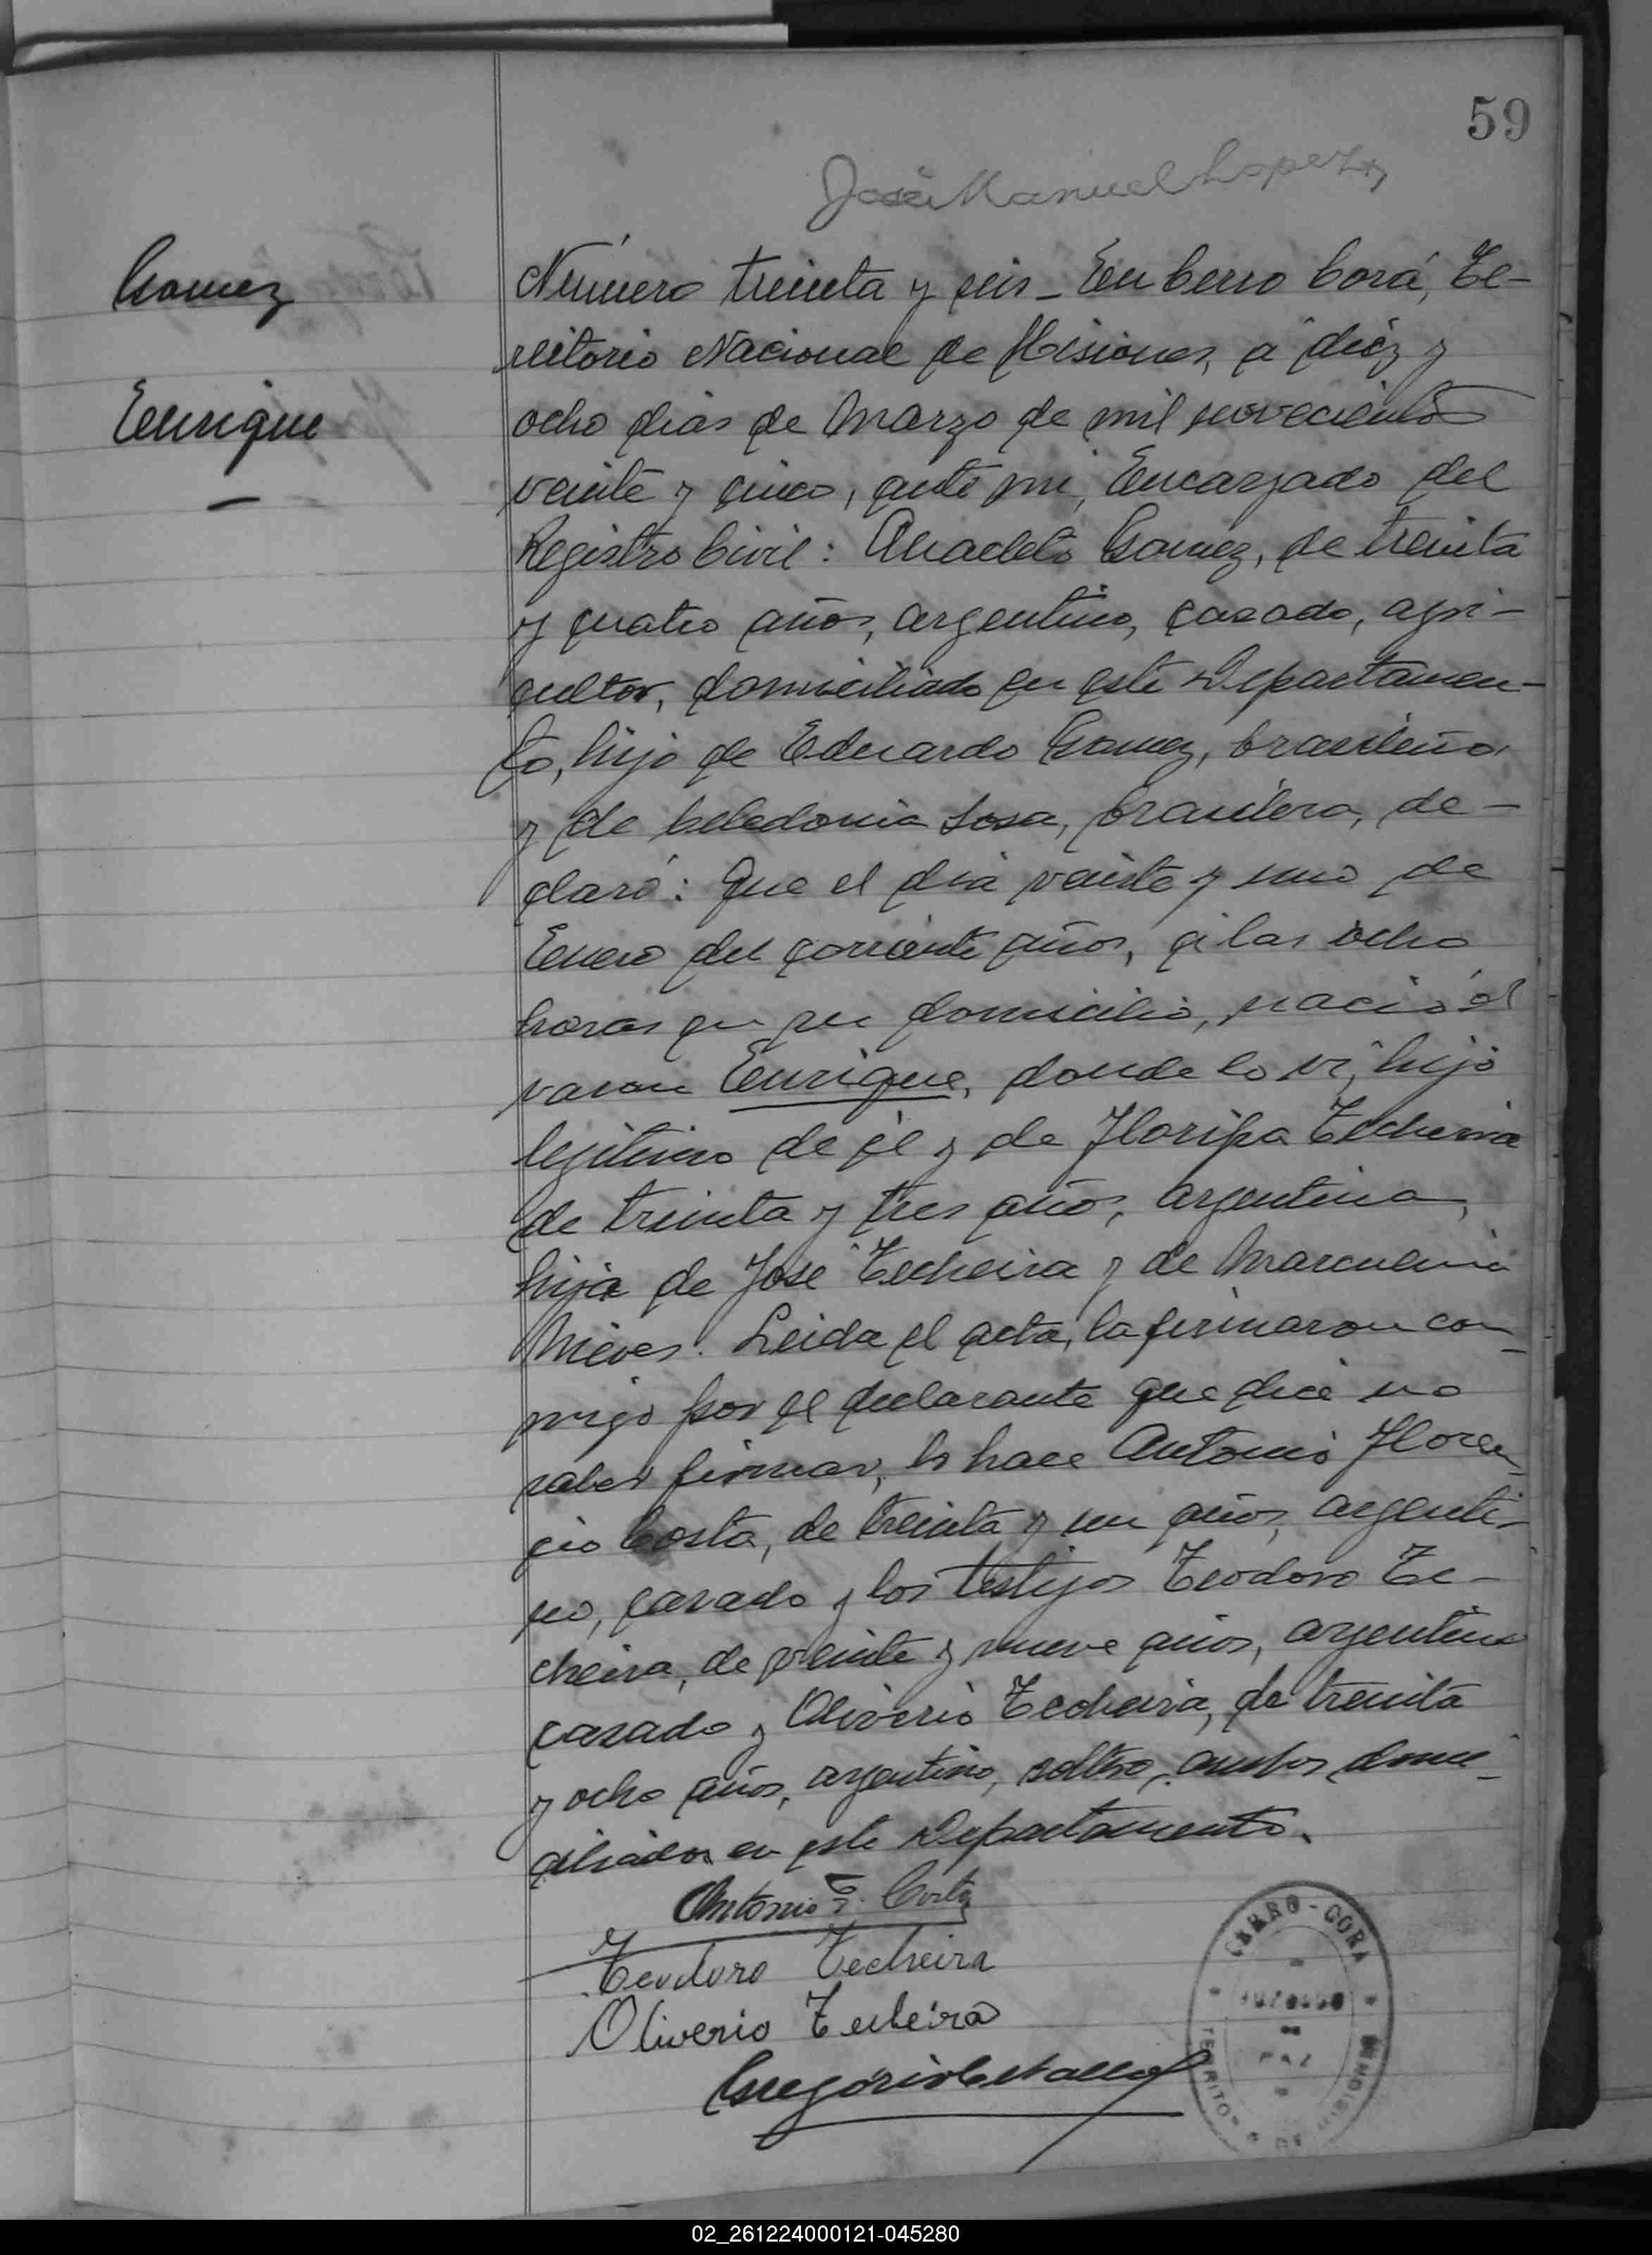 59
José Manuel Lopez
Gomez
Enrique
Número treinta y seis _ En Cerro Corá, Te-
rritorio Nacional de Misiones, a diéz y
ocho dias de Marzo de mil novecientos
veinte y cinco, ante mi, Encargado del
Registro Civil: Anacleto Gomez, de treinta
y cuatro años, argentino, casado, agri-
cultor, domiciliado en este Departamen-
to, hijo de Eduardo Gomez, brasileño,
y de Celedonia Sosa, brasilera, de-
claró: Que el dia veinte y uno de
Enero del corriente años, a las ocho
horas en su domicilio, nació el
varon Enrique, donde lo vi, hijo
legitimo de él y de Floripa Techeira
de treinta y tres años, argentina,
hija de José Techeira y de Marculina
Nieves. Leida el acta, la firmaron con-
migo por el declarante que dice no
saber firmar, lo hace Antonio Floren-
cio Costa, de treinta y un años, argenti-
no, casado y los testigos Teodoro Te-
cheira, de veinte y nueve años, argentino
casado y Oliverio Techeira, de treinta
y ocho años, argentino, soltero, ambos domi-
ciliados en este Departamento.
Antonio F. Costa
Teodoro Techeira
Oliverio Techeira
Gregorio
CERRO-CORA
JUZGADO
DE
PAZ
TERRITO DE MISIONES
02_261224000121-045280